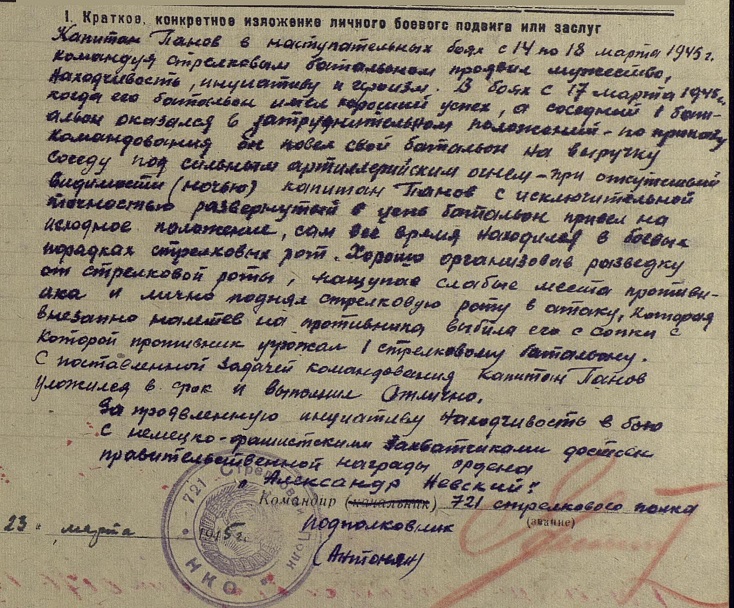 I. Краткое, конкретное изложение личного боевого подвига или заслуг
Капитан Панов в наступательных боях с 14 по 18 марта 1945 г.
командуя стрелковым батальоном проявил мужество,
находчивость, инициативу и героизм. В боях с 17 марта 1945 г.
когда его батальон имел хороший успех, а соседний 1 бат-
альон оказался в затруднительном положений - по приказу
командования он повел свой батальон на выручку
соседу под сильным артиллерийским огнем - при отсутствий
видимости (ночью) капитан Панов с исключительной
точностью развернутый в цепь батальон привел на
исходное положение, сам всё время находился в боевых
порядках стрелковых рот. Хорошо организовав разведку
от стрелковой роты, нащупав слабые места против-
ика и лично поднял стрелковую роту в атаку, которая
внезапно налетев на противника выбила его с сопки с
которой противник угрожал 1 стрелковому батальону.
С поставленной задачей командования капитан Панов
уложился в срок и выполнил отлично.
За проявленную инициативу находчивость в бою
с немецко-фашистскими захватчиками достоин
правительственной награды ордена
"Александр Невский".
Командир (начальник) 721 стрелкового полка
подполковник (звание)
(Антонян)
23 " марта 1945 г.
721 Стрелковый Полк
НКО